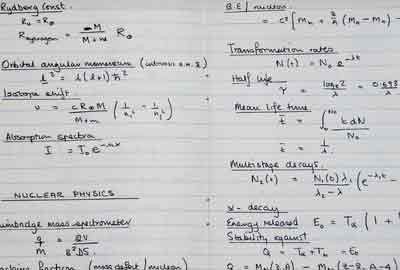 Rydberg Const.
R∞ = R∞
R hydrogen = M / M + m R∞
Orbital angular momentum (intrinsic a.m. s)
l² = l(l+1) ħ²
Isotope shift.
ν = c R∞ M / M+m ( 1/n₁² - 1/n₂² )
Absorption spectra
I = I₀ e^-nαx
NUCLEAR PHYSICS
Bainbridge mass spectrometer
q/M = 2V / B²DS
(mass defect / nucleon)
B.E / nucleon
= c² [ Mn + Z/A (MH - Mn) -
Transformation rates
N(t) = N₀ e^-λt
Half life
τ = loge 2 / λ = 0.693 / λ
Mean life time
t̄ = ∫₀^N₀ t dN / N₀
t̄ = 1/λ
Multistage decays.
N₂(t) = N₁(0) λ₁ / λ₂ - λ ( e^-λ₁t -
α - decay
Energy released E₀ = Tα ( 1 +
Stability against
Q = Tα + Tb = E₀
Q = Mn(Z,A) - Mn(Z-2, A-4)